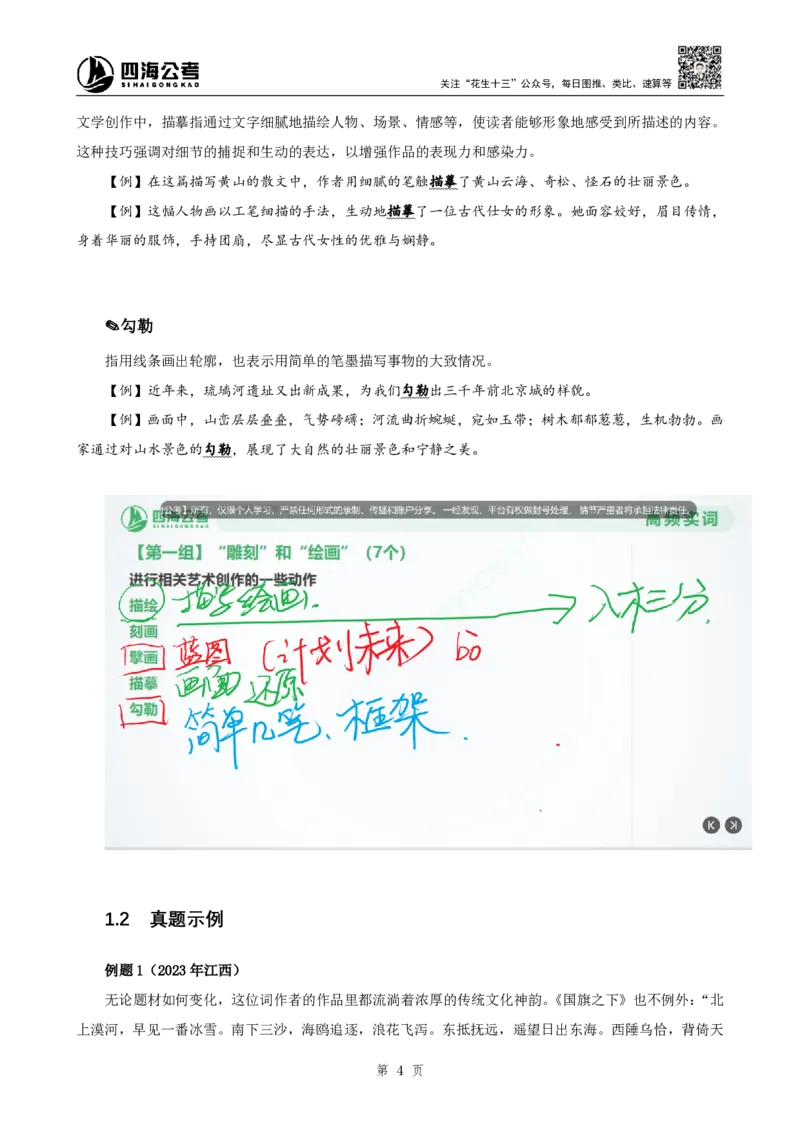 四海公考
SIHAIGONGKAO
关注“花生十三”公众号，每日图推、类比、速算等
文学创作中，描摹指通过文字细腻地描绘人物、场景、情感等，使读者能够形象地感受到所描述的内容。
这种技巧强调对细节的捕捉和生动的表达，以增强作品的表现力和感染力。
【例】在这篇描写黄山的散文中，作者用细腻的笔触描摹了黄山云海、奇松、怪石的壮丽景色。
【例】这幅人物画以工笔细描的手法，生动地描摹了一位古代仕女的形象。她面容姣好，眉目传情，
身着华丽的服饰，手持团扇，尽显古代女性的优雅与娴静。
✎勾勒
指用线条画出轮廓，也表示用简单的笔墨描写事物的大致情况。
【例】近年来，琉璃河遗址又出新成果，为我们勾勒出三千年前北京城的样貌。
【例】画面中，山峦层层叠叠，气势磅礴；河流曲折蜿蜒，宛如玉带；树木郁郁葱葱，生机勃勃。画
家通过对山水景色的勾勒，展现了大自然的壮丽景色和宁静之美。
公考】所有，仅限个人学习，严禁任何形式的录制、传播和账户分享，一经发现，平台有权做封号处理，情节严重者将承担法律责任。
四海公考
高频实词
【第一组】“雕刻”和“绘画”（7个）
进行相关艺术创作的一些动作
描绘 描写绘画 入木三分
刻画
擘画 蓝图（计划未来）bò
描摹 画面还原
勾勒 简单几笔、框架
1.2 真题示例
例题 1（2023 年江西）
无论题材如何变化，这位词作者的作品里都流淌着浓厚的传统文化神韵。《国旗之下》也不例外：“北
上漠河，早见一番冰雪。南下三沙，海鸥追逐，浪花飞泻。东抵抚远，遥望日出东海。西陲乌恰，背倚天
第 4 页